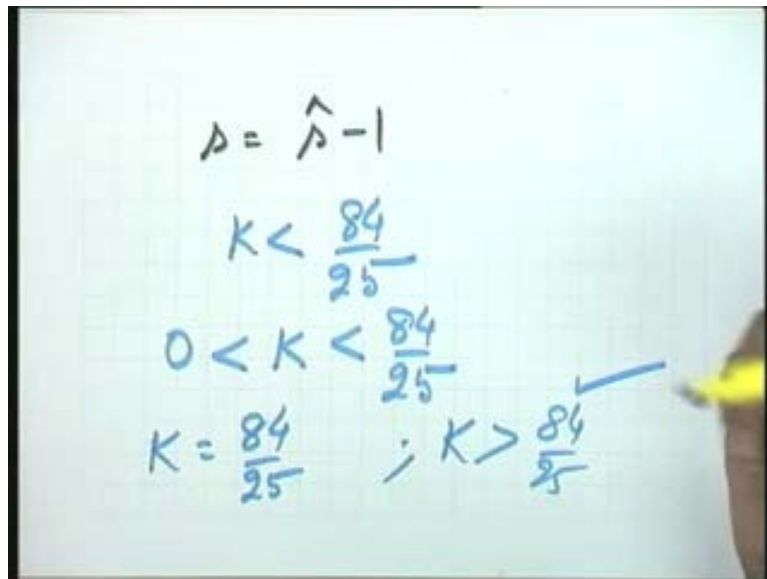 s = ŝ - 1
K < 84/25
0 < K < 84/25
K = 84/25 ; K > 84/25